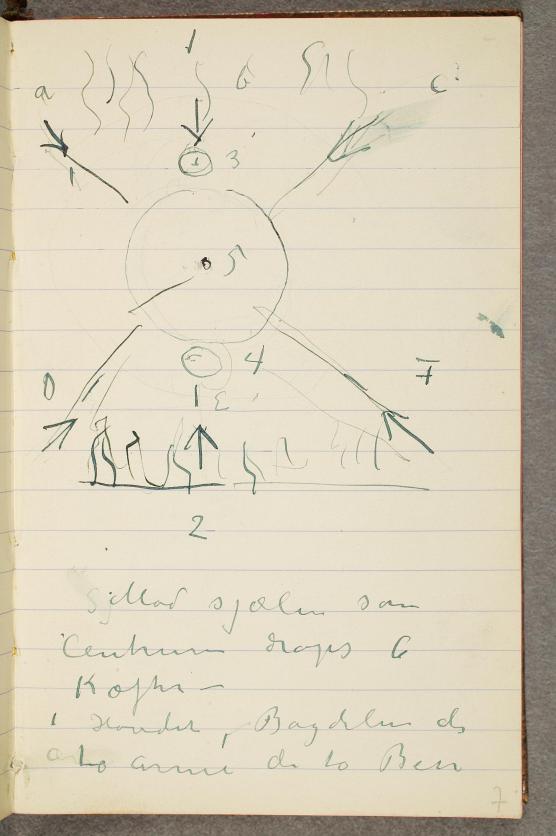 1
a b c
1 3
1
5
4
D 7
1 E
2
sjælen som
Centrum drags 6
Kræfter –
1 Hovedet, Bagdelen de
to arme de to Ben
7